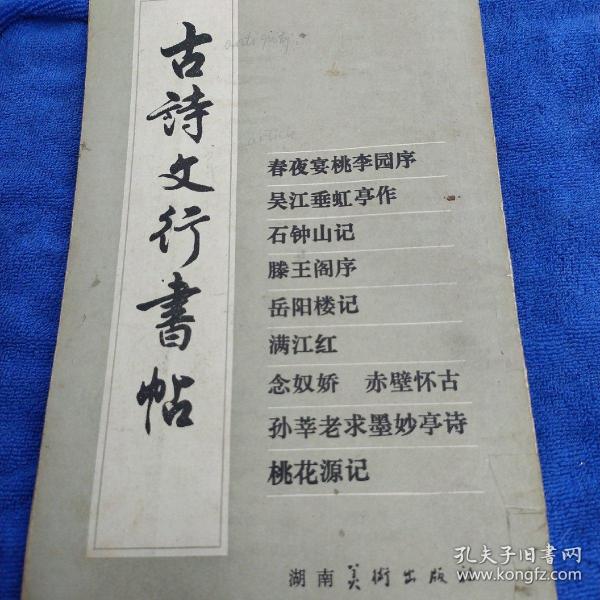 古詩文行書帖
春夜宴桃李园序
吴江垂虹亭作
石钟山记
滕王阁序
岳阳楼记
满江红
念奴娇 赤壁怀古
孙莘老求墨妙亭诗
桃花源记
湖南美術出版社
孔夫子旧书网
www.kongfz.com
article